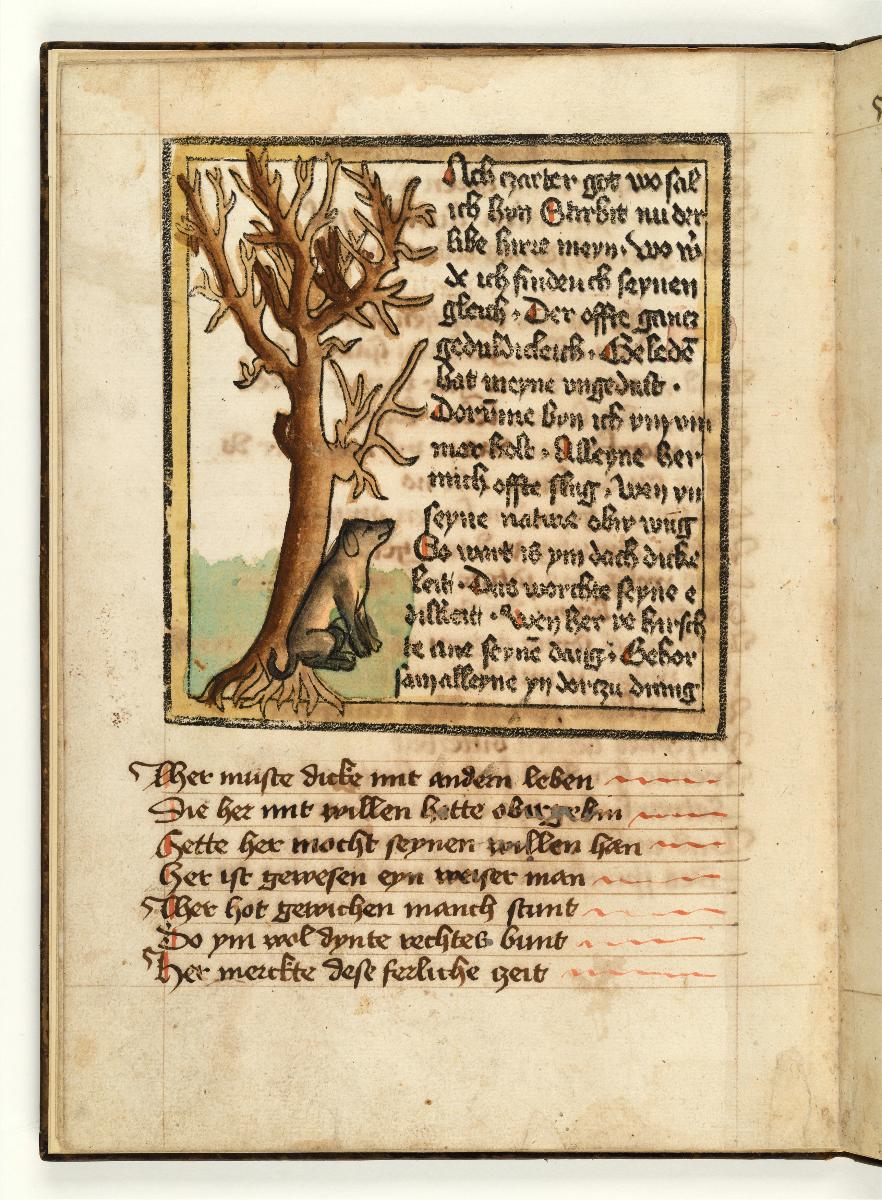 Ach czarter got wo sal
ich hyn Stirbit nu der
libe hirre meyn · wo w̄
de ich finden ich seynen
gleich · Der offte gancz
geduldicleich · Geledē
hat meyne vngedult ·
Dorūme byn ich ym ym
mer holt · Alleyne her
mich offte slug · Wen yn
seyne nature obir wug
So wart is ym dach dicke
leit · Das worchte seyne e
dilkeit · Wen her ve hirsch
te seynē dang · Gehor
sam alleyne yn dorczu dwang
Her muste dicke mit andern leben
Die her mit willen hette obirgebin
Hette her mocht seynen willen han
Her ist gewesen eyn weiser man
Her hot gewichen manch stunt
Do ym wol dynte rechtes bunt
Her merckte dese ferliche czeit